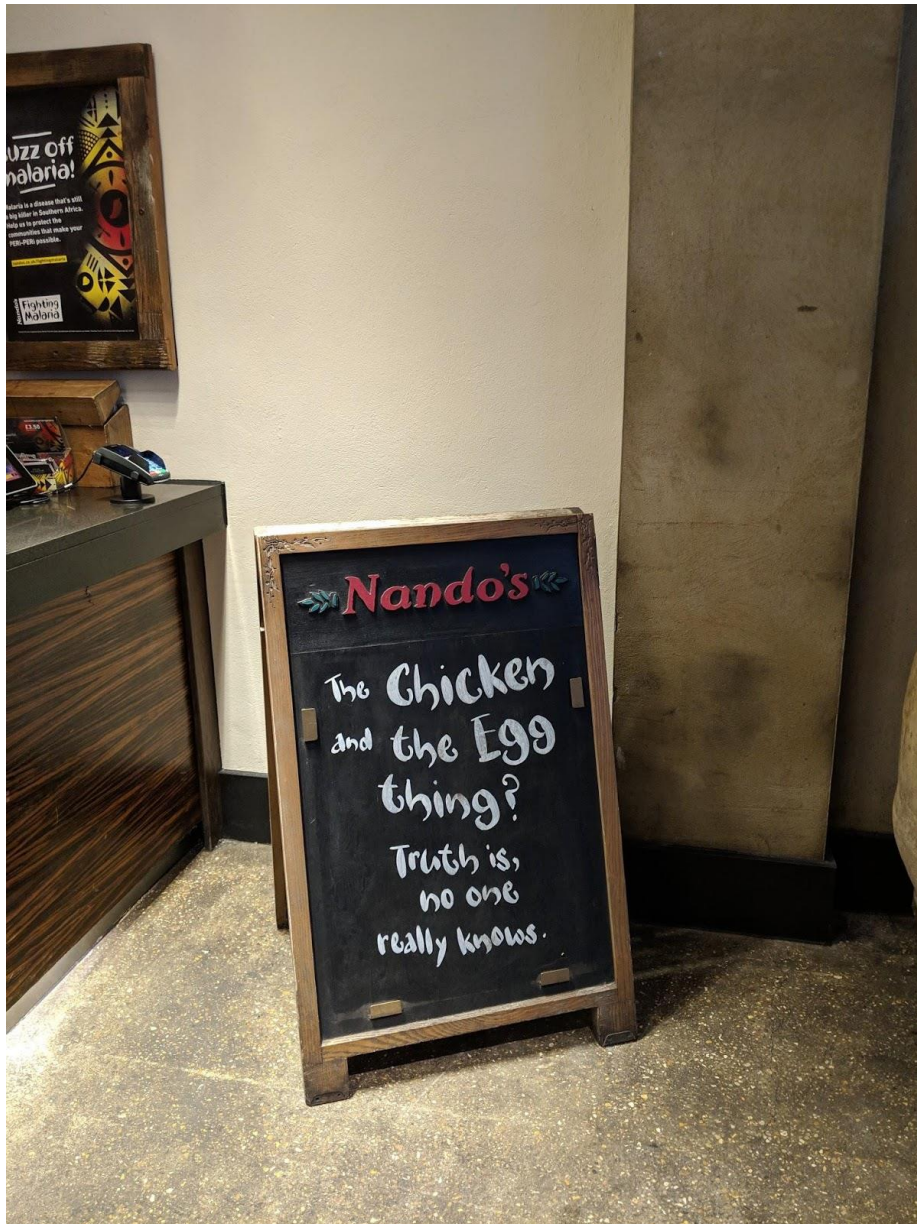 uzz off
malaria!
Malaria is a disease that's still
big killer in Southern Africa.
Help us to protect the
communities that make your
PERi-PERi possible.
Fighting
Malaria
£3.50
Nando's
The Chicken
and the Egg
thing?
Truth is,
no one
really knows.